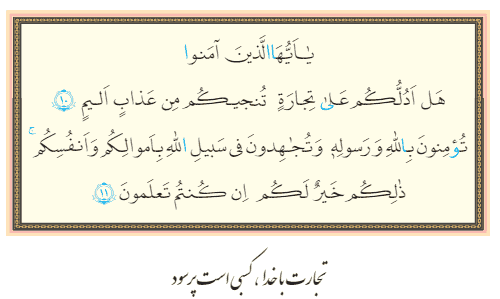 يٰٓاَيُّهَا الَّذينَ آمَنوا
هَل اَدُلُّكُم عَلىٰ تِجارَةٍ تُنجيكُم مِن عَذابٍ اَليمٍ ﴿١٠﴾
تُؤمِنونَ بِاللّٰهِ وَ رَسولِهٖ وَ تُجٰهِدونَ فى سَبيلِ اللّٰهِ بِاَموالِكُم وَ اَنفُسِكُم ۚ
ذٰلِكُم خَيرٌ لَكُم اِن كُنتُم تَعلَمونَ ﴿١١﴾
تجارت با خدا، کسبی است پر سود